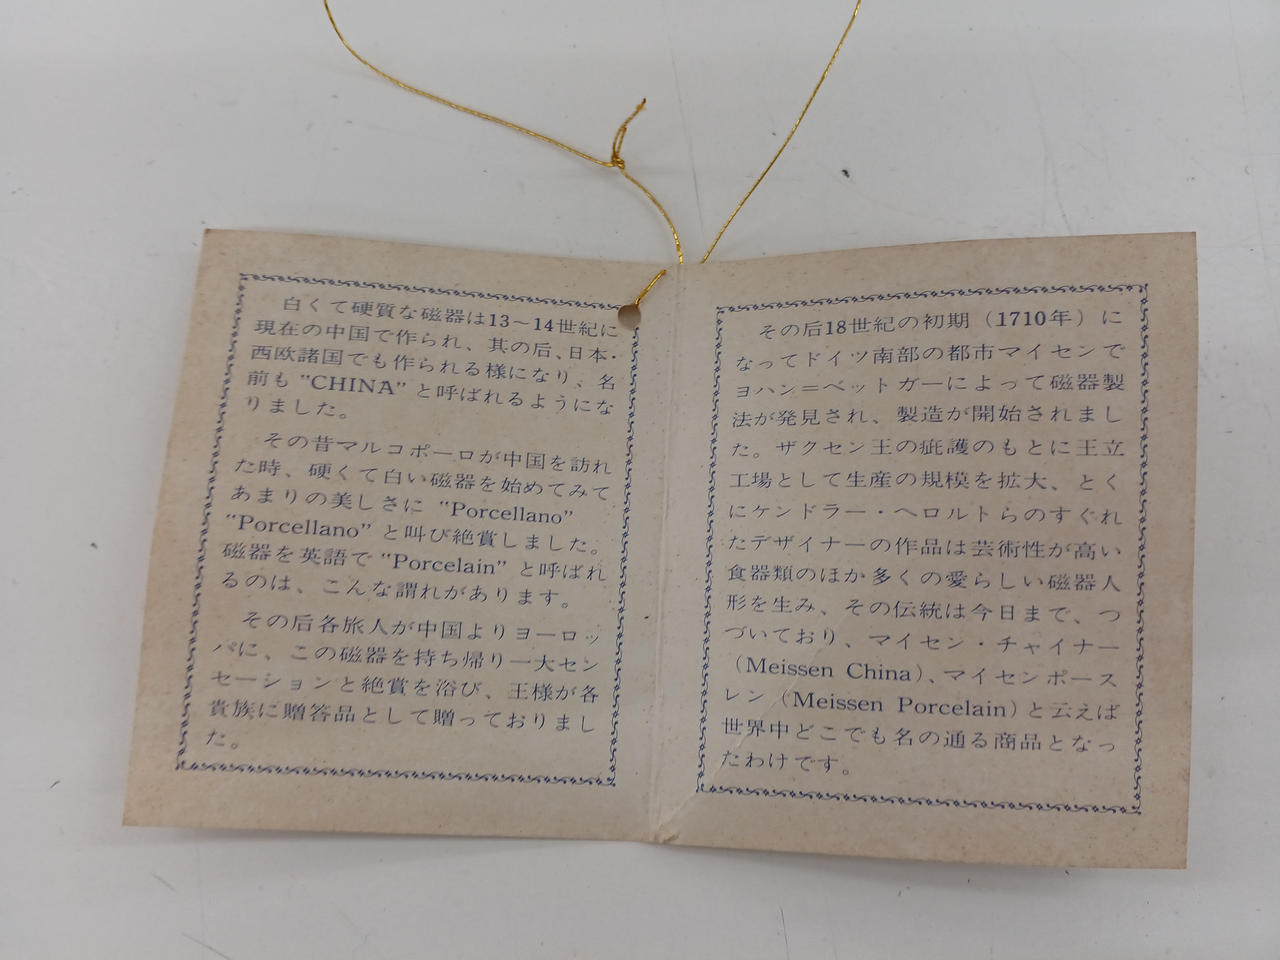 白くて硬質な磁器は13〜14世紀に
現在の中国で作られ、其の后、日本・
西欧諸国でも作られる様になり、名
前も"CHINA"と呼ばれるようにな
りました。
その昔マルコポーロが中国を訪れ
た時、硬くて白い磁器を始めてみて
あまりの美しさに "Porcellano"
"Porcellano" と叫び絶賞しました。
磁器を英語で"Porcelain" と呼ばれ
るのは、こんな謂れがあります。
その后各旅人が中国よりヨーロッ
パに、この磁器を持ち帰り一大セン
セーションと絶賞を浴び、王様が各
貴族に贈答品として贈っておりまし
た。
その后18世紀の初期（1710年）に
なってドイツ南部の都市マイセンで
ヨハン＝ベットガーによって磁器製
法が発見され、製造が開始されまし
た。ザクセン王の庇護のもとに王立
工場として生産の規模を拡大、とく
にケンドラー・ヘロルトらのすぐれ
たデザイナーの作品は芸術性が高い
食器類のほか多くの愛らしい磁器人
形を生み、その伝統は今日まで、つ
づいており、マイセン・チャイナー
（Meissen China）、マイセンポース
レン（Meissen Porcelain）と云えば
世界中どこでも名の通る商品となっ
たわけです。